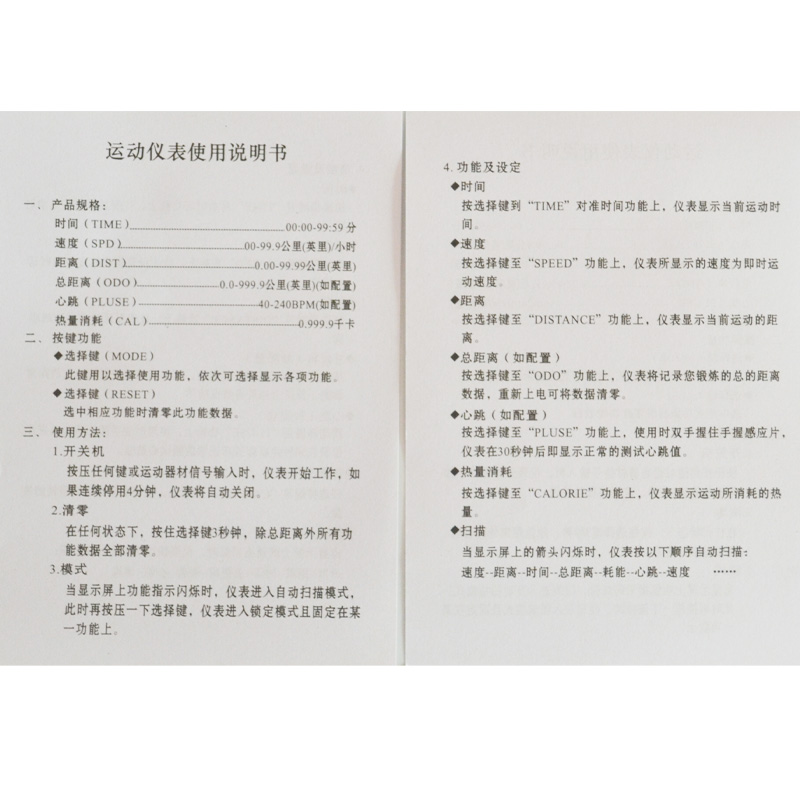 运动仪表使用说明书
一、产品规格:
时间(TIME)........................00:00-99:59 分
速度(SPD)........................00-99.9公里(英里)/小时
距离(DIST)........................0.00-99.99公里(英里)
总距离(ODO)........................0.0-999.9公里(英里)(如配置)
心跳(PLUSE)........................40-240BPM(如配置)
热量消耗(CAL)........................0.999.9千卡
二、按键功能
◆选择键(MODE)
此键用以选择使用功能,依次可选择显示各项功能。
◆选择键(RESET)
选中相应功能时清零此功能数据。
三、使用方法:
1.开关机
按压任何键或运动器材信号输入时,仪表开始工作,如
果连续停用4分钟,仪表将自动关闭。
2.清零
在任何状态下,按住选择键3秒钟,除总距离外所有功
能数据全部清零。
3.模式
当显示屏上功能指示闪烁时,仪表进入自动扫描模式,
此时再按压一下选择键,仪表进入锁定模式且固定在某
一功能上。
4.功能及设定
◆时间
按选择键到“TIME”对准时间功能上,仪表显示当前运动时
间。
◆速度
按选择键至“SPEED”功能上,仪表所显示的速度为即时运
动速度。
◆距离
按选择键至“DISTANCE”功能上,仪表显示当前运动的距
离。
◆总距离(如配置)
按选择键至“ODO”功能上,仪表将记录您锻炼的总的距离
数据,重新上电可将数据清零。
◆心跳(如配置)
按选择键至“PLUSE”功能上,使用时双手握住手握感应片,
仪表在30秒钟后即显示正常的测试心跳值。
◆热量消耗
按选择键至“CALORIE”功能上,仪表显示运动所消耗的热
量。
◆扫描
当显示屏上的箭头闪烁时,仪表按以下顺序自动扫描:
速度--距离--时间--总距离--耗能--心跳--速度 ……